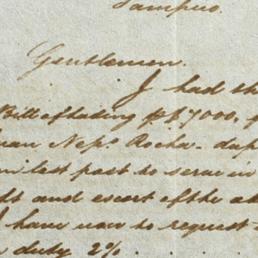 Tampico.
Gentlemen.
I had th
Bill of lading $7000,
uan Nepo. Rocha. dup
last past to serve in
and escort of the a
I have now to request
duty 2%